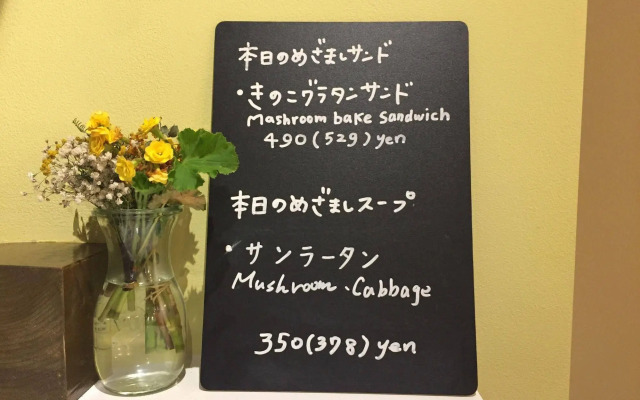 本日のめざましサンド
・きのこグラタンサンド
Mashroom bake Sandwich
490(529)yen
本日のめざましスープ
・サンラータン
Mushroom・Cabbage
350(378)yen